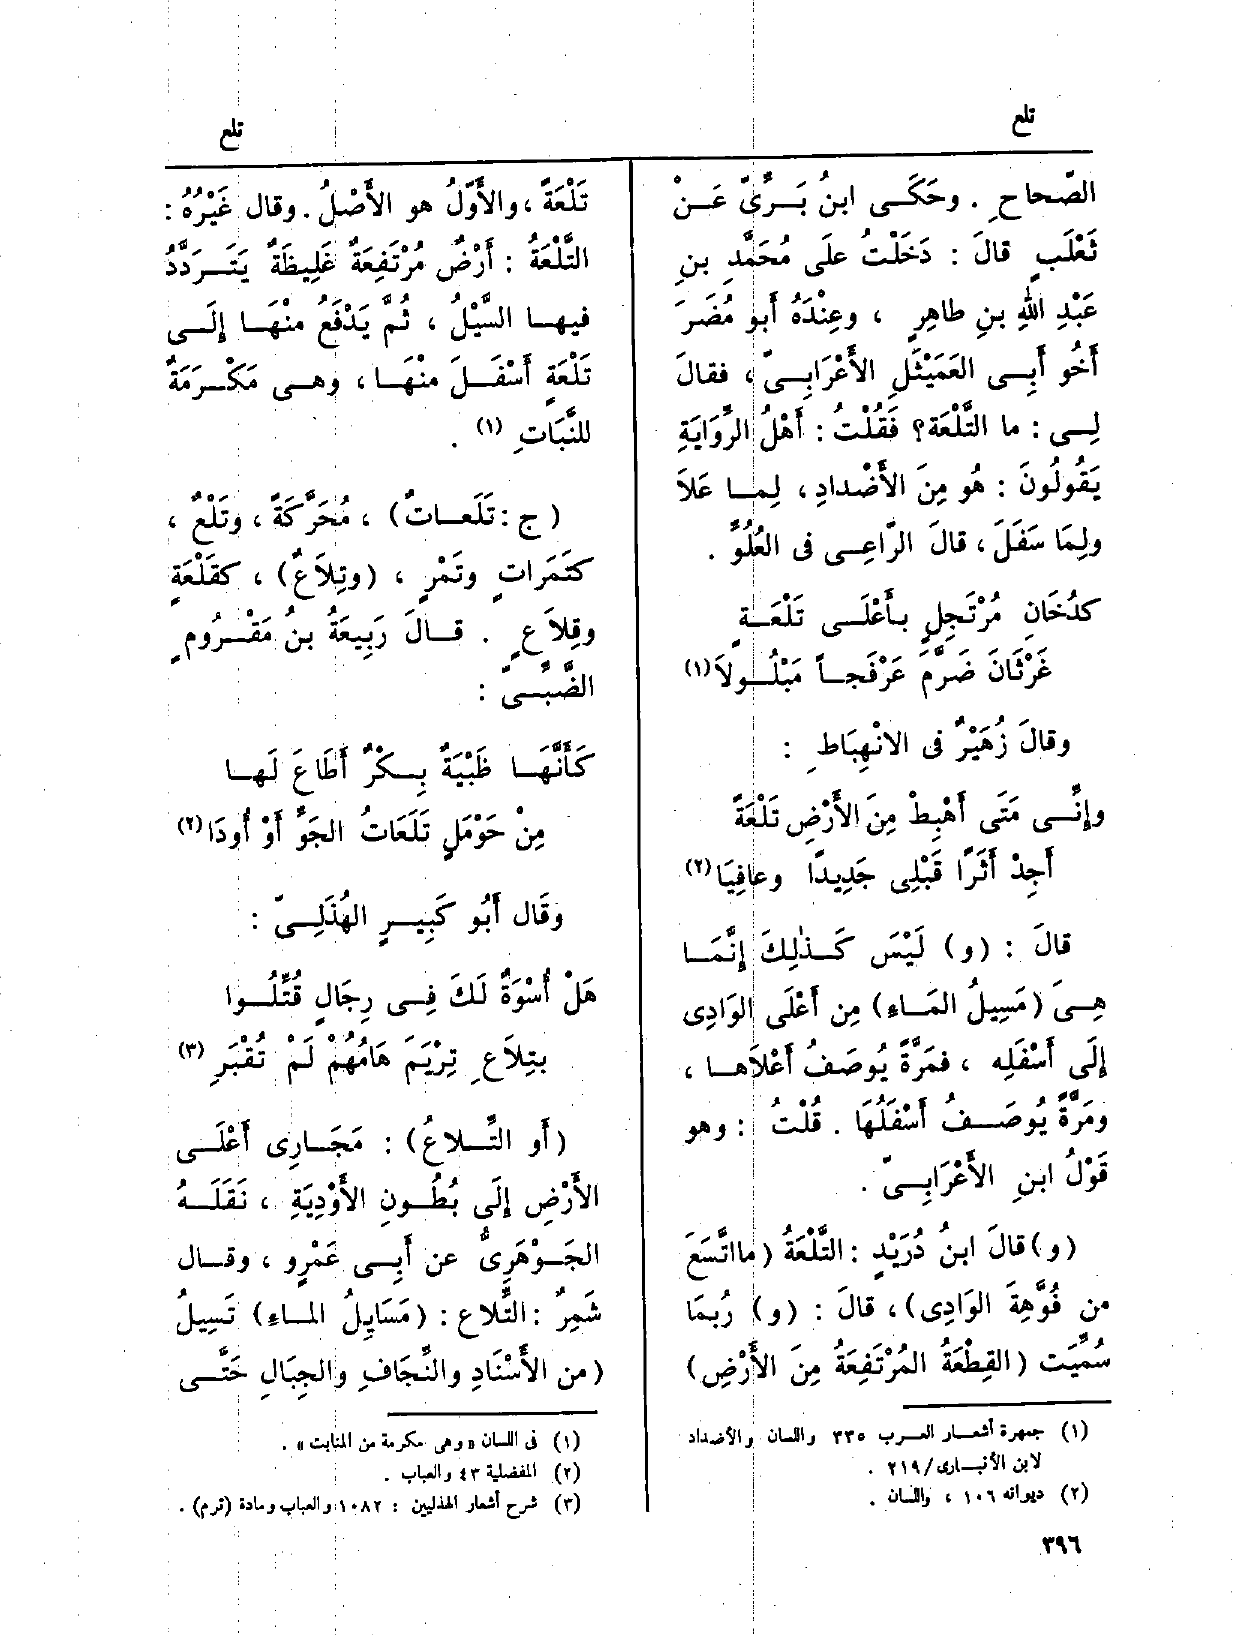 تلع
الصّحاحِ . وحَكَى ابنُ بَرِّىّ عَنْ
ثَعْلَبٍ قالَ : دَخَلْتُ علَى مُحَمَّدِ بنِ
عَبْدِ اللهِ بنِ طاهِرٍ ، وعِنْدَهُ أَبو مُضَرَ
أَخُو أَبِى العَمَيْثَلِ الأَعْرَابِىّ ، فقالَ
لِى : ما التَّلْعَة؟ فَقُلْتُ : أَهْلُ الرِّوَايَةِ
يَقُولُونَ : هُو مِنَ الأَضْدادِ ، لِما عَلاَ
ولِمَا سَفَلَ ، قالَ الرّاعِى فى العُلُوِّ .
كدُخَانِ مُرْتَجِلٍ بأَعْلَى تَلْعَةٍ
غَرْثَانَ ضَرَّمَ عَرْفَجاً مَبْلُولاَ (١)
وقالَ زُهَيْرٌ فى الانْهِبَاطِ :
وإِنِّى مَتَى أَهْبِطْ مِنَ الأَرْضِ تَلْعَةً
أَجِدْ أَثَرًا قَبْلِى جَدِيدًا وعافِيَا (٢)
قالَ : (و) لَيْسَ كَذٰلِكَ إِنَّمَا
هِىَ (مَسِيلُ المَاءِ) مِن أَعْلَى الوَادِى
إِلَى أَسْفَلِه ، فمَرَّةً يُوصَفُ أَعْلاَها ،
ومَرَّةً يُوصَفُ أَسْفَلُهَا . قُلْتُ : وهو
قَوْلُ ابنِ الأَعْرَابِىّ .
(و) قالَ ابنُ دُرَيْدٍ : التَّلْعَةُ (ما اتَّسَعَ
من فُوَّهةِ الوَادِى) ، قالَ : (و) رُبمَا
سُمِّيَت (القِطْعَةُ المُرْتَفِعَةُ مِنَ الأَرْضِ)
(١) جمهرة أشعار العرب ٣٣٥ واللسان والأضداد
لابن الأنبارى/ ٢١٩ .
(٢) ديوانه ١٠٦ ، واللسان .
٣٩٦
تلع
تَلْعَةً ، والأَوَّلُ هو الأَصْلُ . وقال غَيْرُهُ :
التَّلْعَةُ : أَرْضٌ مُرْتَفِعَةٌ غَلِيظَةٌ يَتَرَدَّدُ
فيها السَّيْلُ ، ثُمَّ يَدْفَعُ منْهَا إِلَى
تَلْعَةٍ أَسْفَلَ منْهَا ، وهى مَكْرَمَةٌ
للنَّبَاتِ (١) .
( ج : تَلَعاتٌ) ، مُحَرَّكَةً ، وتَلْعٌ ،
كتَمَراتٍ وتَمْرٍ ، (وتِلاَعٌ) ، كقَلْعَةٍ
وقِلاَعٍ . قالَ رَبِيعَةُ بنُ مَقْرُومٍ
الضَّبِّىّ :
كَأَنَّهَا ظَبْيَةٌ بِكْرٌ أَطَاعَ لَها
مِنْ حَوْمَلٍ تَلَعَاتُ الجَوِّ أَوْ أُودَا (٢)
وقَال أَبُو كَبِيرٍ الهُذَلِىّ :
هَلْ أُسْوَةٌ لَكَ فِى رِجَالٍ قُتِّلُوا
بتِلاَعِ تِرْيَمَ هَامُهُمْ لَمْ تُقْبَرِ (٣)
(أَو التِّلاعُ) : مَجَارِى أَعْلَى
الأَرْضِ إِلَى بُطُونِ الأَوْدِيَةِ ، نَقَلَهُ
الجَوْهَرِىُّ عن أَبِى عَمْرٍو ، وقال
شَمِرٌ : التِّلاع : (مَسَايِلُ الماءِ) تَسِيلُ
(من الأَسْنَادِ والنِّجَافِ والجِبَالِ حَتَّى
(١) فى اللسان «وهى مكرمة من المنابت» .
(٢) المفضلية ٤٣ والعباب .
(٣) شرح أشعار الهذليين : ١٠٨٢ والعباب ومادة (ترم) .